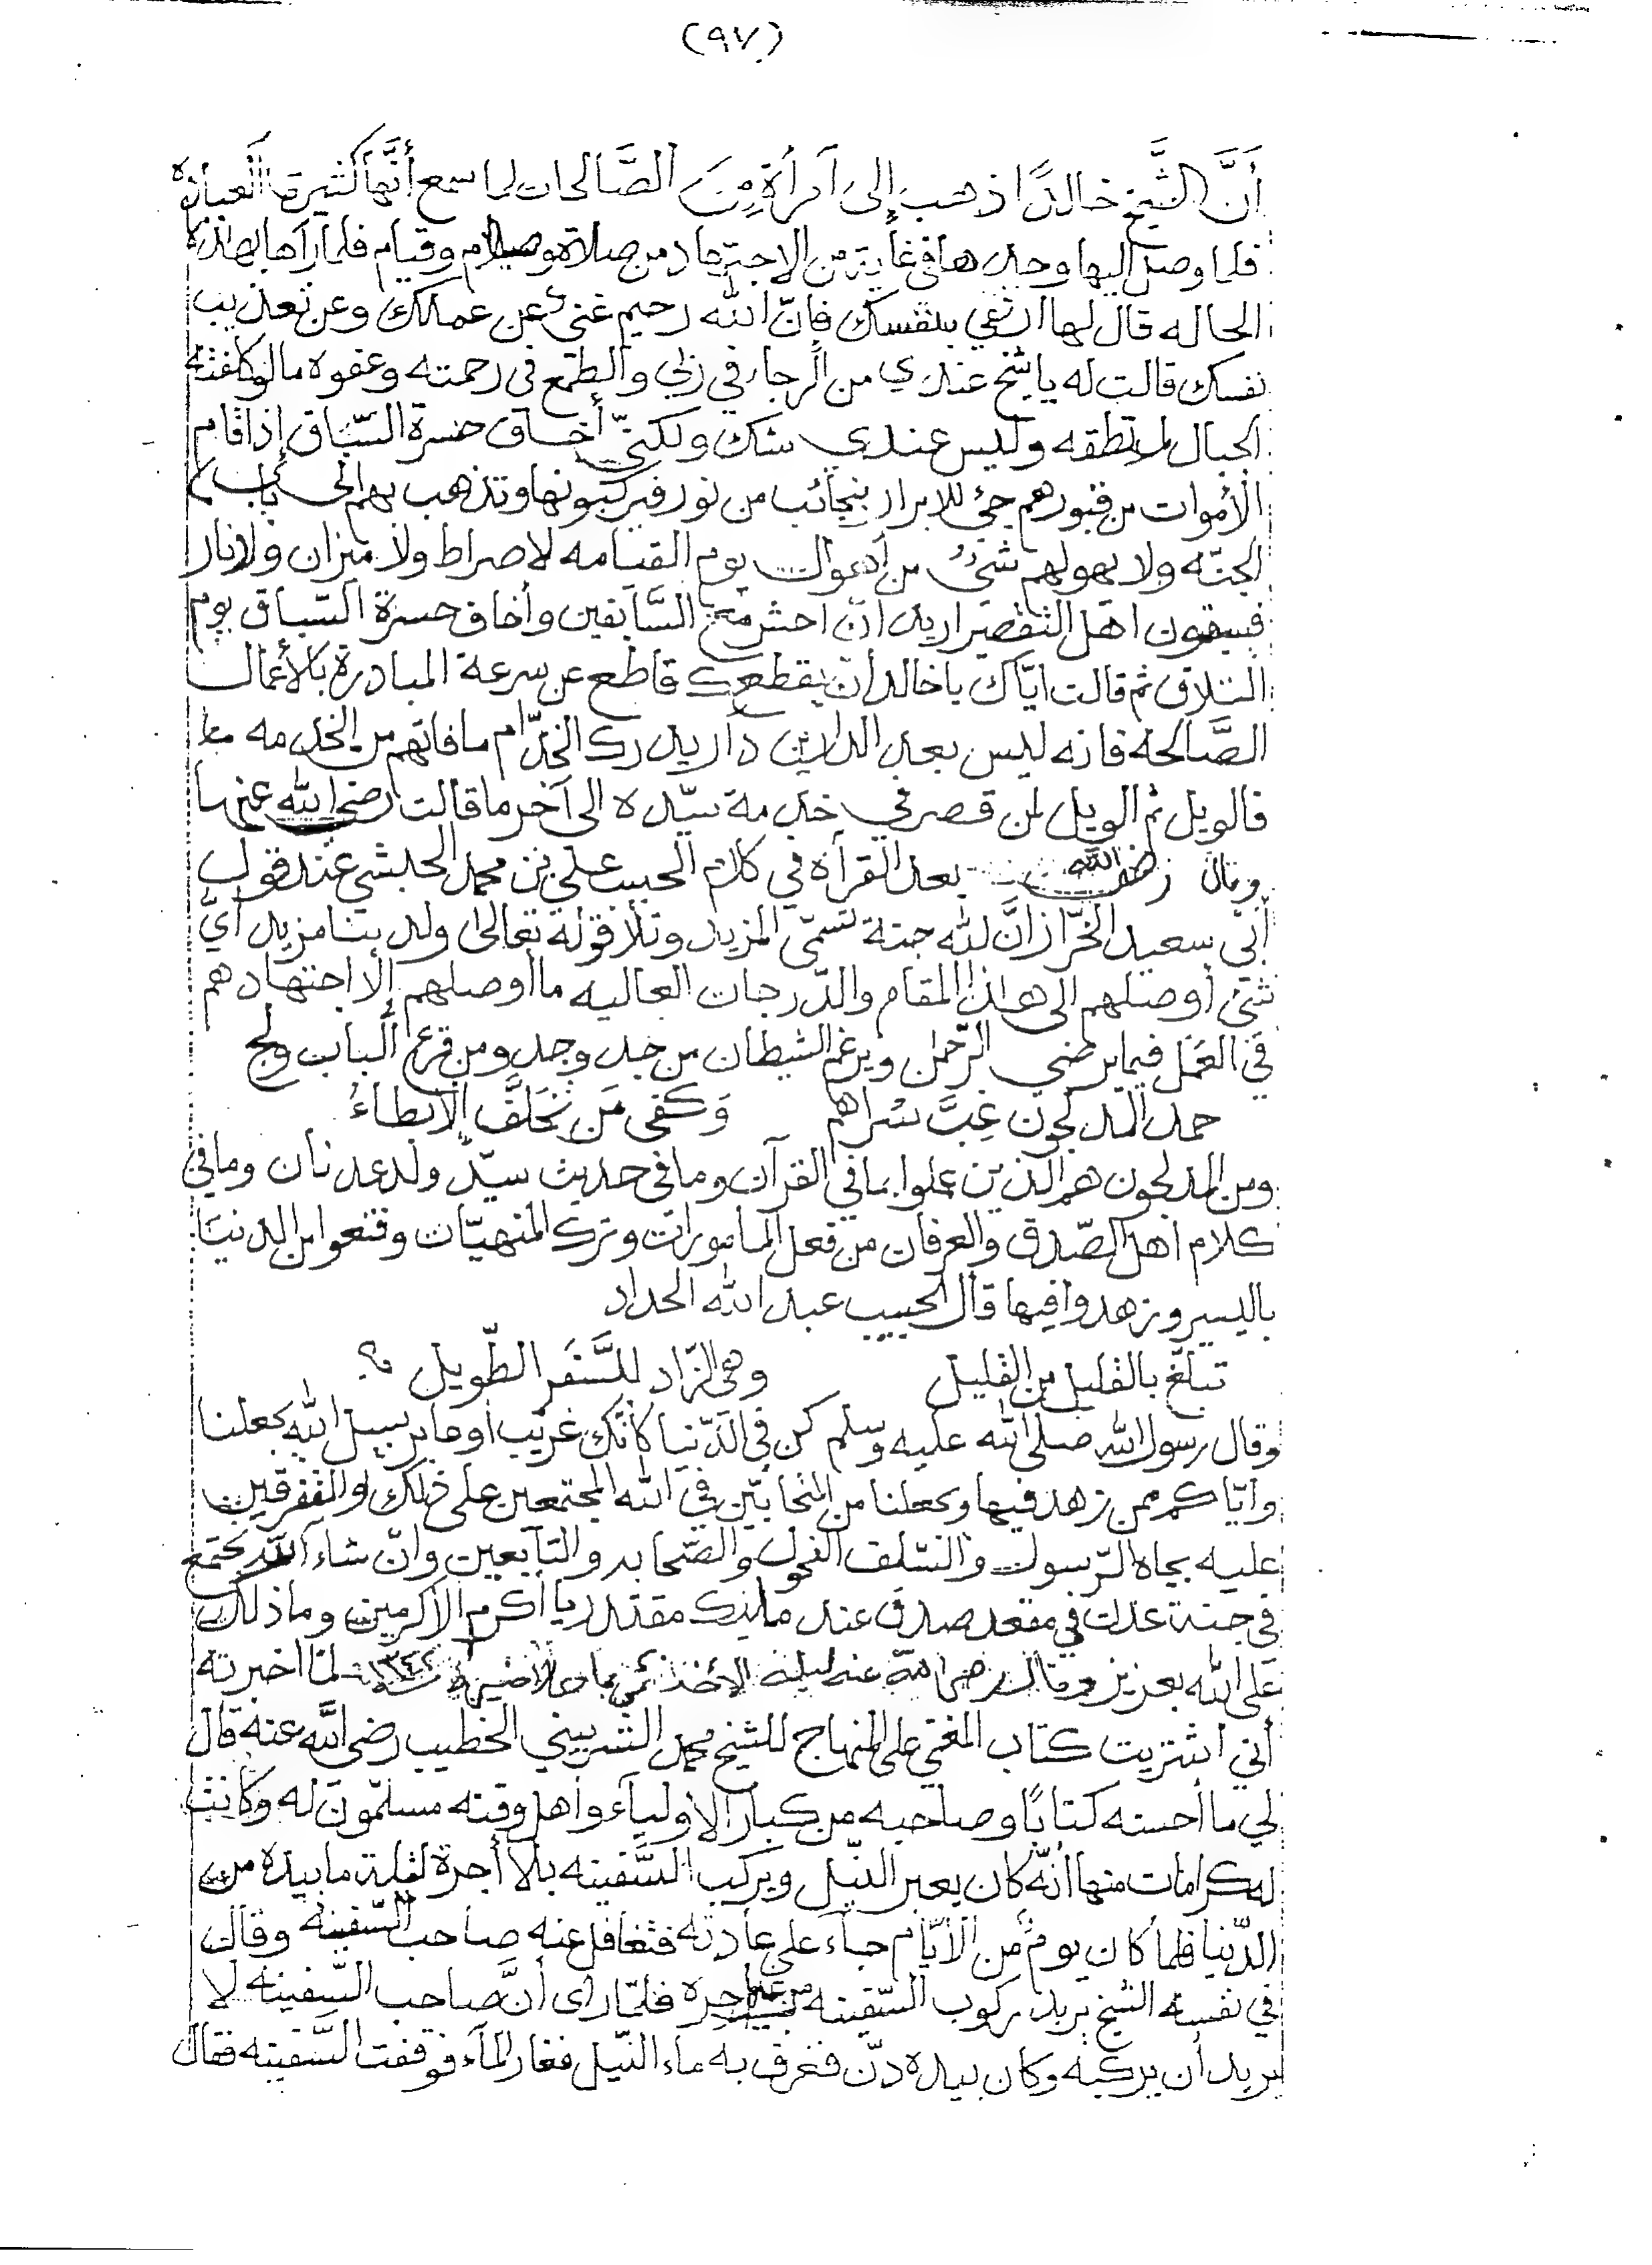 (٩٧)
أَنَّ الشَّيخ خالدًا ذهب إلى آمرأة مِنَ الصَّالحات لما سمع أنَّها كثيرة العبادة
فلما وصل إليها وجدها في غاية من الاجتهاد من صلاة وصيام وقيام فلما رآها بهاذه
الحاله قال لها ارفعي بنفسك فإنّ الله رحيم غني عن عملك وعن تعذيب
نفسك قالت له يا شيخ عندي من الرجاء في ربي والطمع في رحمته وعفوه ما لو كلفته
الجبال لم تطقه وليس عندي شك ولكنّي أخاف حسرة السّباق إذا قام
الأموات من قبورهم جيء للابرار بنجائب من نور فيركبونها وتذهب بهم الى باب
الجنّه ولا يهولهم شيءٌ من أهوال يوم القيامه لاصراط ولا ميزان ولا نار
فيبقون اهل التقصير اريد انّ احشر مع السَّابقين وأخاف حسرة السّباق يوم
التلاق ثم قالت ايّاك يا خالد ان يقطعك قاطع عن سرعة المبادرة بالأعمال
الصَّالحه فانه ليس بعد الدارين دار يدرك الخدّام ما فاتهم من الخدمه
فالويل ثم الويل لمن قصر في خدمة سيّده الى آخر ما قالت رضي الله عنها
وقال رضي الله عنه بعد القرآة في كلام الحبيب علي بن محمد الحبشي عند قول
أبي سعيد الخرّاز انَّ لله جنة تسمّى المزيد وتلا قوله تعالى ولدينا مزيد أيُّ
شيء أوصلهم الى هاذا المقام والدّرجات العاليه ما أوصلهم إلا اجتهادهم
في العَمَل فيما يرضي الرّحمن ويرغم الشيطان من جد وجد ومن قرع الباب ولج
حمد المدلجون غِبَّ سُراهم وَكفى مَن تَخَلَّفَ الإبطاءُ
ومن المدلجون هم الذين عملوا بما في القرآن وما في حديث سيّد ولد عدنان وما في
كلام اهل الصّدق والعرفان من فعل المامورات وترك المنهيّات وقنعوا من الدنيا
باليسير وزهدوا فيها قال الحبيب عبد الله الحداد
تبلّغ بالقليل من القليل وهي الزّاد للسَّفَر الطّويل
وقال رسول الله صلى الله عليه وسلم كن في الدّنيا كأنّك غريب أو عابر سبيل الله يجعلنا
وايّاكم ممن زهد فيها ويجعلنا من المتحابّين في الله المجتمعين على ذلك والمتفرقين
عليه بجاه الرّسول والسّلف الفحول والصّحابه والتابعين وانّ شاء الله نجتمع
في جنة عدن في مقعد صدق عند مليك مقتدر يا أكرم الأكرمين وما ذلك
على الله بعزيز وقال رضي الله عنه ليلة الأحد لمّا اخبرته
أني اشتريت كتاب المغني على المنهاج للشيخ محمد الشربيني الخطيب رضي الله عنه قال
لي ما أحسنه كتابًا وصاحبه من كبار الأولياء وأهل وقته مسلّمون له وكانت
له كرامات منها أنّه كان يعبر النّيل ويركب السَّفينه بلا أجرة لقلة ما بيده من
الدّنيا فلما كان يومٌ من الأيّام جاء على عادته فتغافل عنه صاحب السّفينه وقال
في نفسه الشيخ يريد ركوب السّفينه من غير أجره فلمّا رأى أنَّ صاحب السّفينه لا
يريد أن يركبه وكان بيده دنّ فغرف به ماء النّيل فغار الماء فوقفت السَّفينه فقال